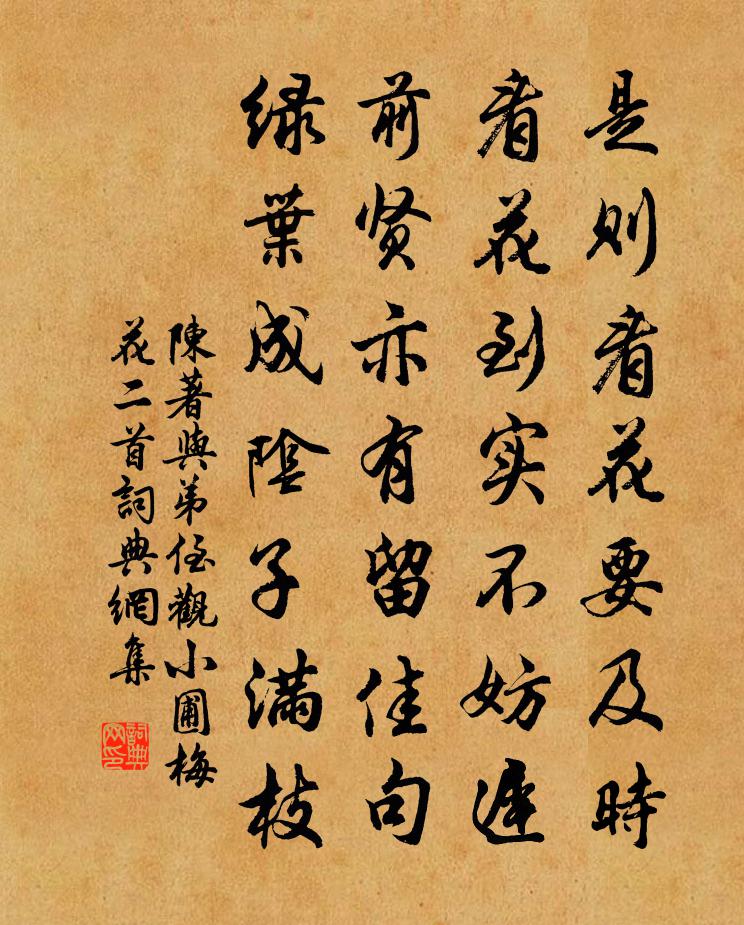 是则看花要及時
看花到实不妨遲
前贤亦有留佳句
绿葉成陰子满枝
陳著與弟侄觀小圃梅
花二首詞典網集
詞典网印